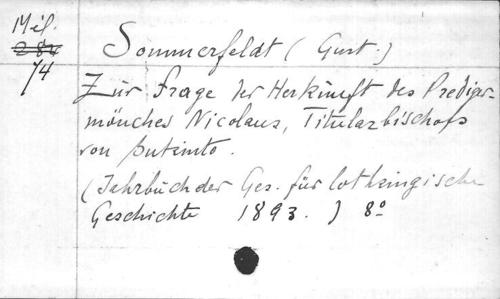 Mél.
284
74
Sommerfeldt (Gust.)
Zur Frage der Herkunft des Prediger-
mönches Nicolaus, Titularbischofs
von Butinto.
(Jahrbuch der Ges. für lothringische
Geschichte 1893.) 8º